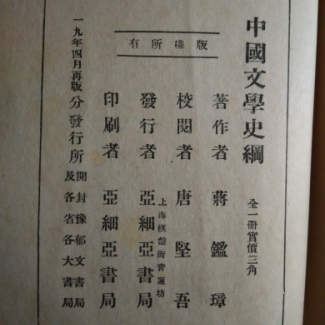 中國文學史綱
全一册實價三角
版權所有
著作者 蔣鑑璋
校閱者 唐堅吾
發行者 亞細亞書局
上海棋盤街青蓮坊
印刷者 亞細亞書局
分發行所 開封豫郁文書局
及各省各大書局
一九年四月再版